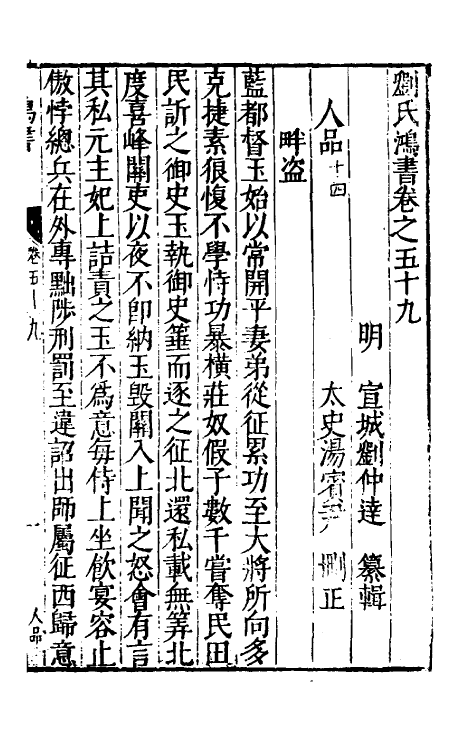 劉氏鴻書卷之五十九
明 宣城劉仲達 纂輯
太史湯賓尹 刪正
人品十四
畔盜
藍都督玉始以常開平妻弟從征累功至大將所向多
克捷素很愎不學恃功暴橫莊奴假子數千嘗奪民田
民訢之御史玉執御史箠而逐之征北還私載無筭北
度喜峰關吏以夜不卽納玉毀關入上聞之怒會有言
其私元主妃上詰責之玉不爲意每侍上坐飮宴容止
傲悖總兵在外專黜陟刑罰至違詔出師屬征西歸意
鴻書
卷五十九
一
人品